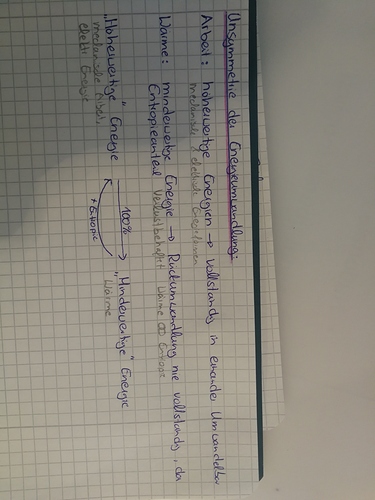 Unsymmetrie der Energieumwandlung:
Arbeit: höherwertige Energien → vollständig in einander Umwandelbar
mechanische & elektrische Energieformen
Wärme: minderwertige Energie → Rückumwandlung nie vollständig, da
Entropieanteil Verlustbehaftet Wärme ∞ Entropie
"Höherwertige" Energie 100% → "Minderwertige" Energie
mechanische Arbeit, Wärme
elektr. Energie
+ Entropie